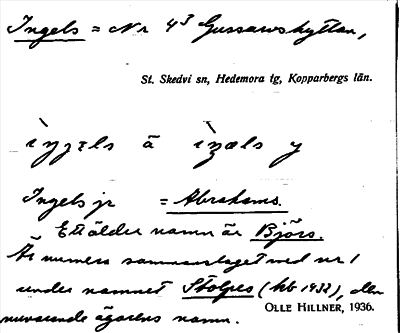 Ingels = Nr 4³ Gussarvshyttan,
St. Skedvi sn, Hedemora tg, Kopparbergs län.
ä
Ingels jr = Abrahams.
Ett äldre namn är Björs.
Är numera sammanslaget med nr 1
under namnet Stolpes (kb 1932), den
nuvarande ägarens namn.
OLLE HILLNER, 1936.